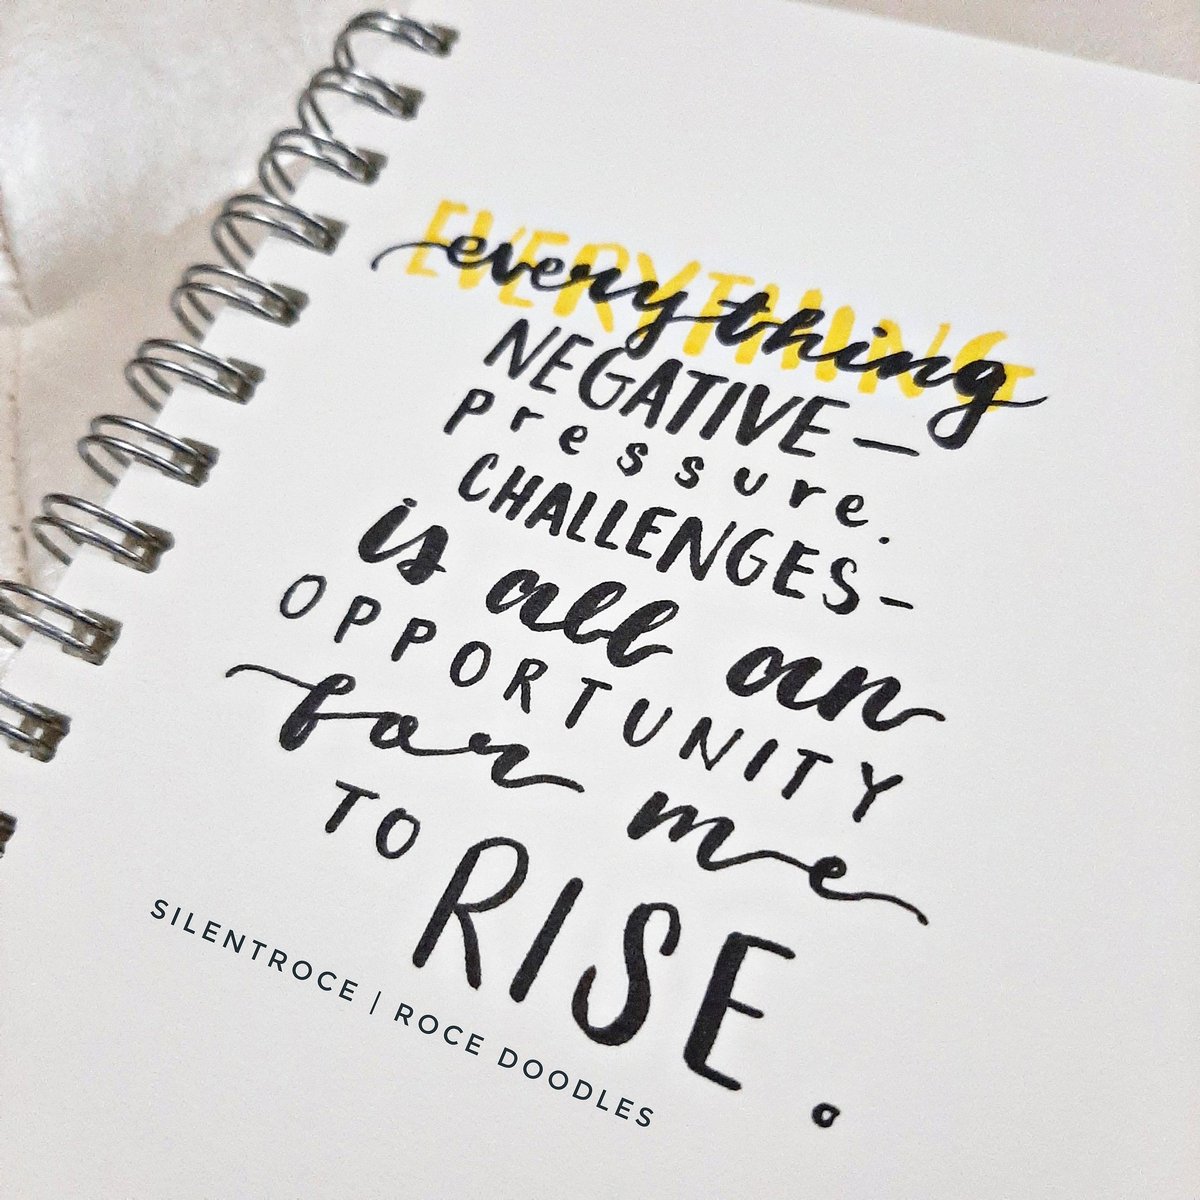 EVERYTHING
everything
NEGATIVE —
pressure.
CHALLENGES-
is all an
OPPORTUNITY
for me
TO RISE.
SILENTROCE | ROCE DOODLES